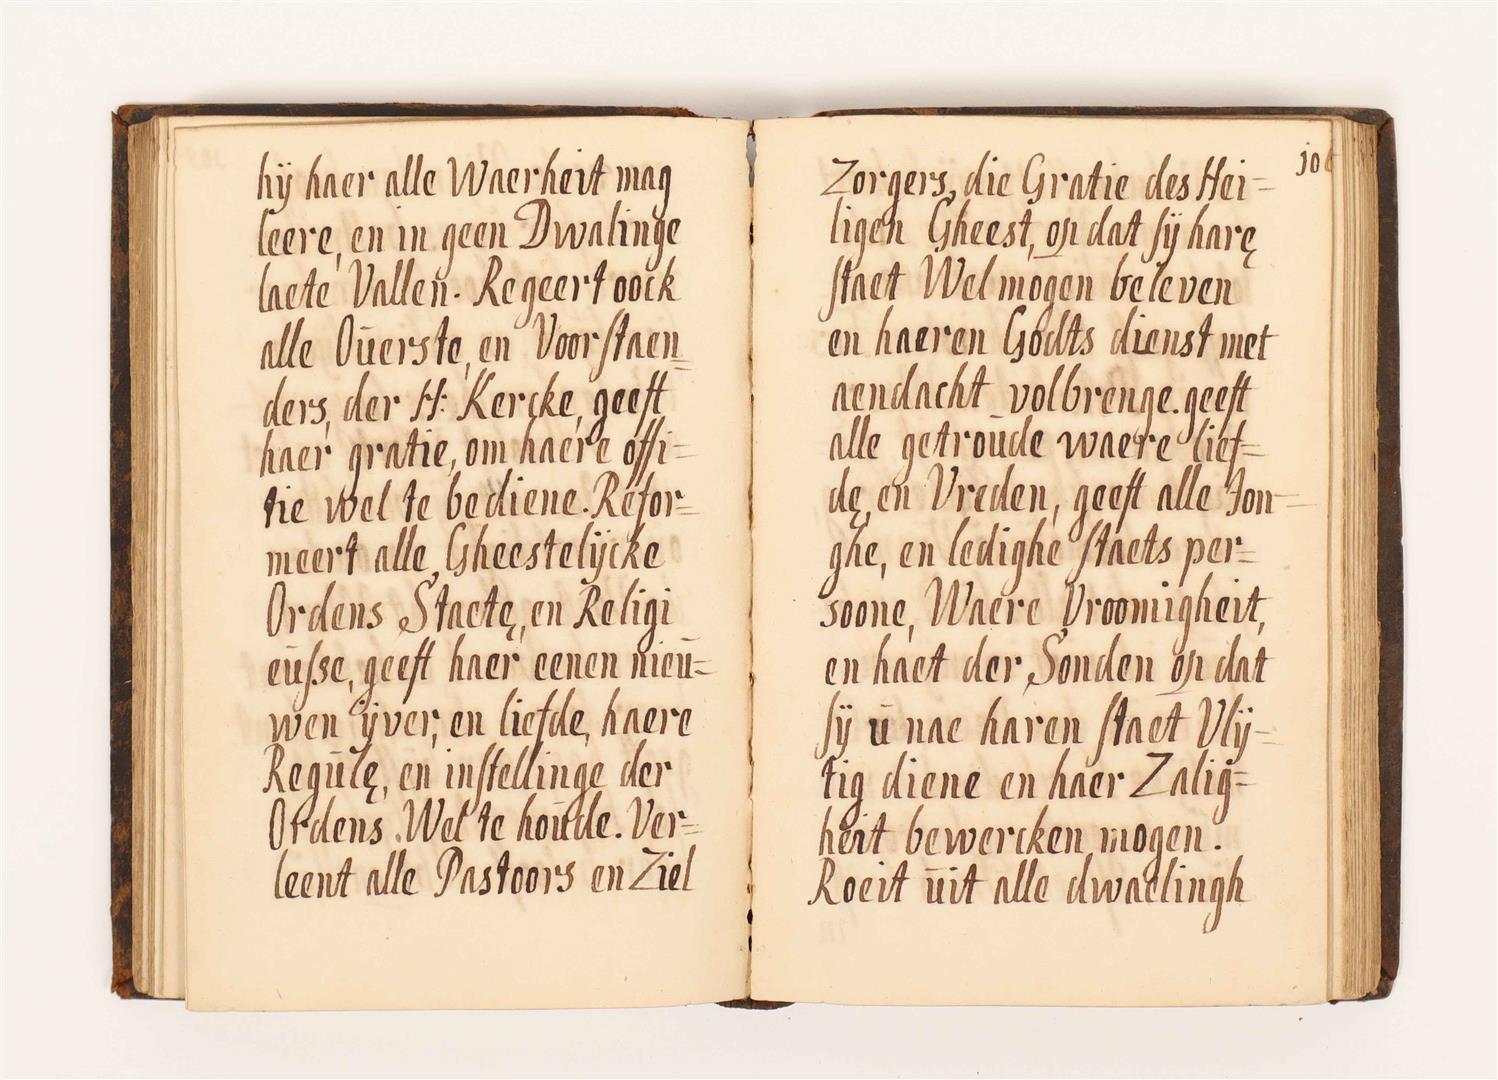 hÿ haer alle Waerheit mag
leere, en in geen Dwalinge
laete Vallen. Regeert oock
alle Oūerste, en Voorstaen=
ders, der H: Kercke, geeft
haer gratie, om haere offi=
tie wel te bediene. Refor=
meert alle, Gheestelÿcke
Ordens Staetę, en Religi
eūsse, geeft haer eenen nieū=
wen ÿver, en liefde, haere
Regūlę, en instellinge der
Ordens. Wel te hoūde. Ver=
leent alle Pastoors en Ziel
106
Zorgers, die Gratie des Hei=
ligen Gheest, op dat sÿ harę
staet Wel mogen beleven
en haeren Godts dienst met
aendacht volbrenge. geeft
alle getroūde waere lief=
dę, en Vreden, geeft alle Jon=
ghe, en ledighe staets per=
soone, Waere Vroomigheit,
en haet der Sonden op dat
sÿ ū nae haren staet Vlÿ=
tig diene en haer Zalig=
heit bewercken mogen.
Roeit ūit alle dwaelingh